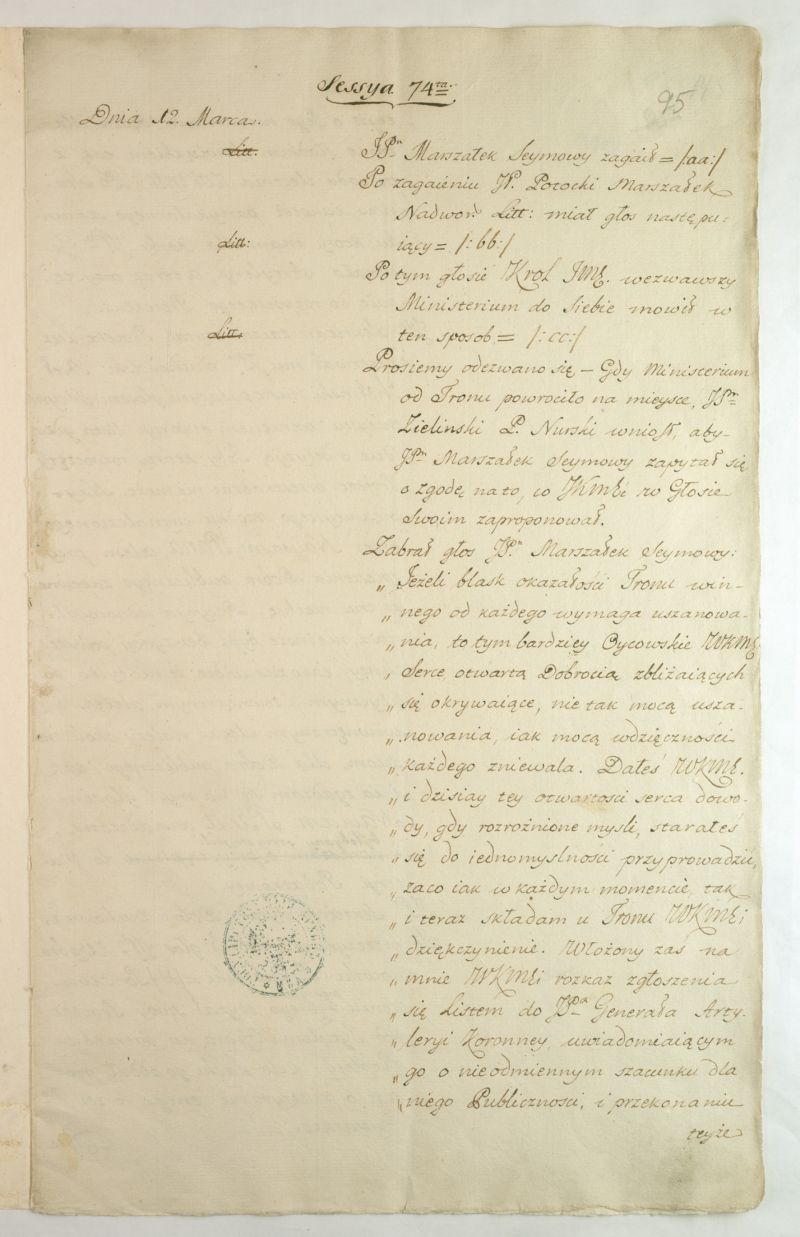 Sessya 74ta
95
Dnia 12. Marca.
Litt:
JPn Marszałek Seymowy zagaił = /aa:/
Po zagaieniu JP. Potocki Marszałek
Nadwor: Litt: miał głos następu:
Litt:
iący = /: bb:/
Po tym głosie Krol JME. wezwawszy
Ministerium do Siebie mowił w
Litt.
ten sposob = /: cc:/
Prosiemy odezwano się – Gdy Ministerium
od Tronu powrociło na mieysce, JPn
Zielinski P. Nurski wniosł, aby
JPn Marszałek Seymowy zapytał się
o zgodę na to, co JKMEi w Głosie
Swoim zaproponował.
Zabrał głos JPn Marszałek Seymowy:
„ Jeżeli blask okazałości Tronu win-
„ nego od każdego wymaga uszanowa-
„ nia, to tym bardzięy Oycowskie WKME
„ Serce otwartą Dobrocią zbliżaiących
„ się okrywaiące, nie tak mocą usza-
„ nowania, iak mocą wdzięczności
„ każdego zniewala. Dałeś WKME.
„ i dzisiay tey otwartosci serca dowo-
„ dy, gdy rozrożnione mysli, starałeś
„ się do iednomyslności przyprowadzić,
„ za co iak w każdym momencie, tak
„ i teraz składam u Tronu WKMEi
„ dziękczynienie. Włożony zas na
„ mnie WKMEi rozkaz zgłoszenia
„ się Listem do JPa Generała Arty-
„ leryi Koronney, uwiadomiaiącym
„ go o nieodmiennym szacunku dla
„ niego Publiczności, i przekonaniu
teyże